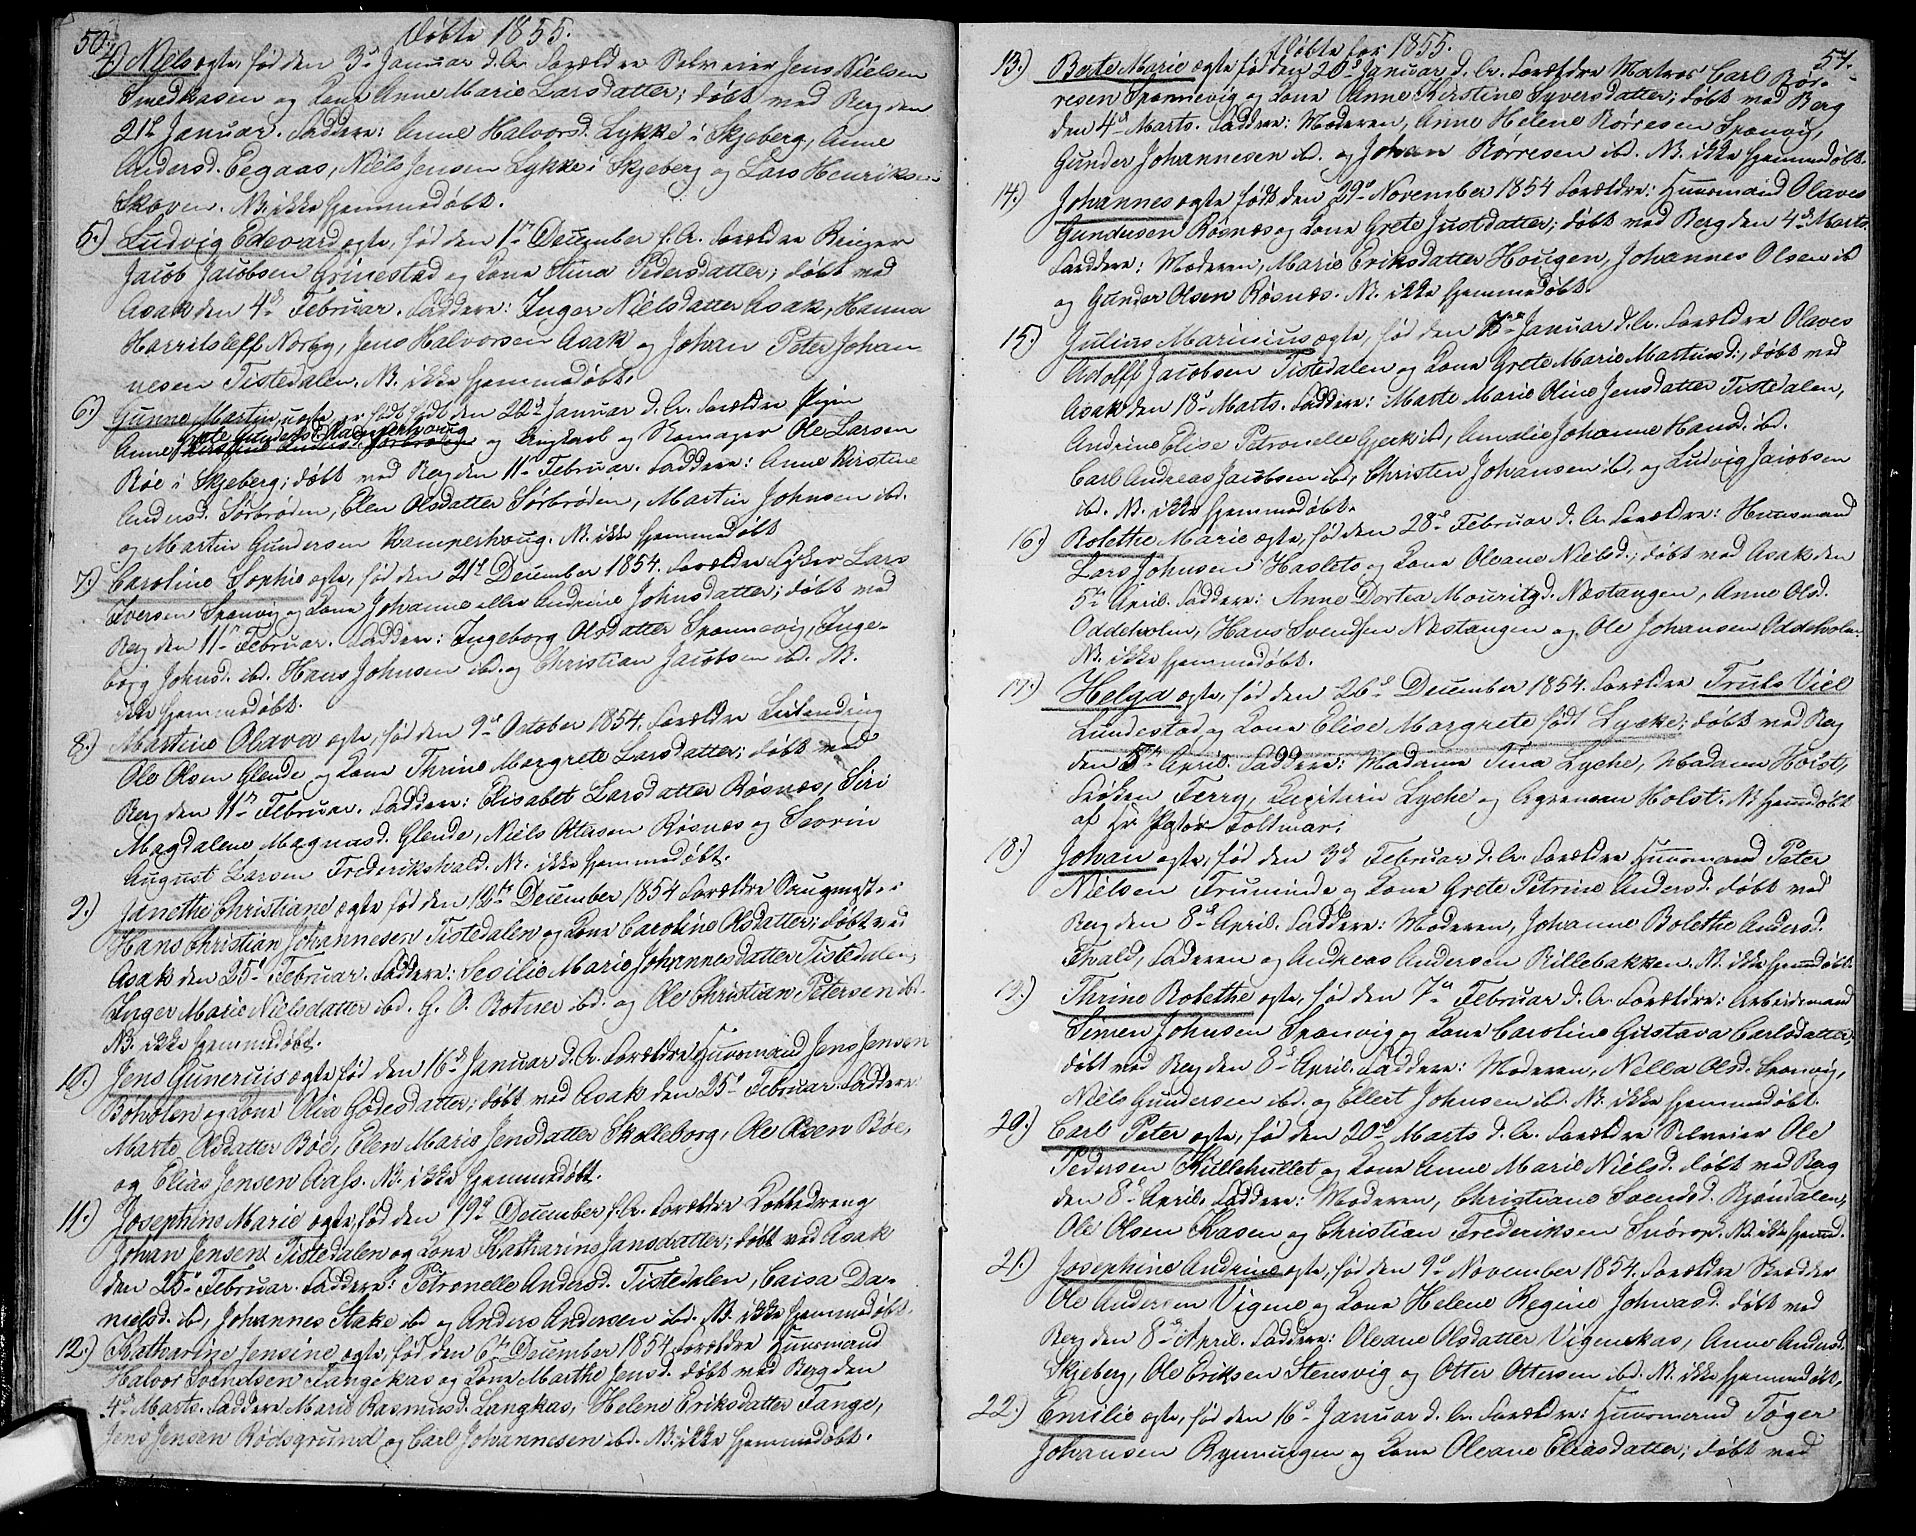 50.
Døbte 1855.
4) Niels ægte, fød den 3d Januar d. Ar. Forældre Selveier Jens Nielsen
Smedkasen og Kone Anne Marie Larsdatter; døbt ved Berg den
21d Januar. Faddere: Anne Halvorsd. Lykke i Skjeberg, Anne
Andersd. Eegaas, Niels Jensen Lykke i Skjeberg og Lars Henriksen
Skoven. NB. ikke hjemmedøbt.
5.) Ludvig Edevard ægte, fød den 1ste December f. Ar. Forældre
Jacob Jacobsen Grinestad og Kone Stina Pedersdatter; døbt ved
Asak den 4de Februar. Faddere: Inger Nielsdatter Asak, Hanna
Harritsleff Norby, Jens Halvorsen Asak og Johan Peter Johan-
nesen Tistedalen. NB. ikke hjemmedøbt.
6.) Gunne Martin, uægte, født den 22d Januar d. Ar. Forældre Pigen
Anne Grete Gundersd. Kamperhoug og Ungkarl og Skomager Ole Larsen
Bøe i Skjeberg; døbt ved Berg den 11te Februar. Faddere: Anne Kirstine
Andersd. Sørbrøden, Elen Olsdatter Sørbrøden, Martin Johnsen ibd.
og Martin Gundersen Kamperhoug. NB. ikke hjemmedøbt
7.) Caroline Sophie ægte, fød den 21d December 1854. Forældre Fisker Lars
Iversen Sponvig og Kone Johanne eller Andrine Johnsdatter; døbt ved
Berg den 11te Februar. Faddere: Ingeborg Olsdatter Sponnvig, Inge-
borg Johnsd. ibd. Hans Johnsen ibd. og Christian Jacobsen ibd. NB.
ikke hjemmedøbt.
8.) Martine Olava ægte, fød den 9de October 1854. Forældre Leilending
Ole Olsen Glende og Kone Thrine Margrete Larsdatter; døbt ved
Berg den 11te Februar. Faddere: Elisabet Larsdatter Røsnæs, Siri
Magdalene Magnusd. Glende, Niels Ottersen Røsnæs og Sevrin
August Larsen Frederikshald. NB. ikke hjemmedøbt.
9.) Janethe Christiane ægte fød den 10de December 1854 Forældre Saugmst.
Hans Christian Johannesen Tistedalen og Kone Caroline Olsdatter; døbt ved
Asak den 25d Februar. Faddere: Secilie Marie Johannesdatter Tistedalen,
Inger Marie Nielsdatter ibd. G. O. Botner ibd. og Ole Christian Petersen ibd.
NB. ikke hjemmedøbt.
10.) Jens Gunerius ægte fød den 16de Januar d. Ar. Forældre Huusmand Jens Jensen
Boholen og Kone Olia Godesdatter; døbt ved Asak den 25d Februar. Faddere:
Marte Olsdatter Bøe, Elen Marie Jensdatter Skolleborg, Ole Olsen Bøe,
og Elias Jensen Aass. NB. ikke hjemmedøbt.
11.) Josephine Marie ægte, fød den 19d December f. Ar. Forældre Løkkedreng
Johan Jensen Tistedalen og Kone Katharina Jansdatter; døbt ved Asak
den 25de Februar. Faddere: Petronelle Andersd. Tistedalen, Caisa Da-
nielsd. ibd, Johannes Stake ibd og Anders Andersen ibd. NB. ikke hjemmedøbt.
12.) Katharine Jensine ægte, fød den 6te December 1854 Forældre Huusmand
Halvor Svendsen Tangekas og Kone Marthe Jensd. døbt ved Berg den
4de Marts. Faddere Marie Rasmusd. Langkas, Helene Eriksdatter Tange,
Jens Jensen Rødsgrund og Carl Johannesen ibd. NB. ikke hjemmedøbt.
51.
Døbte for 1855.
13.) Berte Marie ægte fød den 20d Januar d. Ar. Forældre Matros Carl Bør-
resen Sponnevig og Kone Anne Kirstine Syversdatter; døbt ved Berg
den 4de Marts. Faddere: Moderen, Anne Helene Børresen Sponvig,
Gunder Johannesen ibd. og Johan Børresen ibd. NB. ikke hjemmedøbt.
14.) Johannes ægte født den 29de November 1854 Forældre: Huusmand Olaves
Gundersen Røsnæs og Kone Grete Justdatter; døbt ved Berg den 4de Marts.
Faddere: Moderen, Marie Eriksdatter Hougen, Johannes Olsen ibd
og Gunder Olsen Røsnæs. NB. ikke hjemmedøbt.
15.) Julius Marinius ægte, fød den Januar d. Ar. Forældre Olaves
Adolff Jacobsen Tistedalen og Kone Grete Marie Martinusd., døbt ved
Asak den 18de Marts. Faddere: Marte Marie Oline Jensdatter Tistedalen,
Andrine Elise Petronelle Gjerk ibd, Amalie Johanne Hansd. ibd.
Carl Andreas Jacobsen ibd, Christen Johansen ibd, og Ludvig Jacobsen
ibd. NB. ikke hjemmedøbt.
16.) Bolethe Marie ægte, fød den 28de Februar d. Ar. Forældre: Huusmand
Lars Johnsen Haslets og Kone Oleane Nielsd.; døbt ved Asak den
5te April. Faddere: Anne Dortea Mouritzd. Næstangen, Anne Olsd.
Oddeholm, Hans Svendsen Næstangen og Ole Johansen Oddeholm.
NB. ikke hjemmedøbt.
17.) Helga ægte, fød den 26de December 1854. Forældre Truls Viel
Lundestad og Kone Elise Margrete født Lycke; døbt ved Berg
den 5te April. Faddere: Madame Tina Lyche, Madame Holst,
Frøken Ferry, Capitain Lyche og Agronom Holst. NB. hjemdøbt
af Hr Pastor Foltmar.
18.) Johan ægte, fød den 3d Februar d. Ar. Forældre Huusmand Peter
Nielsen Truminde og Kone Grete Petrine Andersd. døbt ved
Berg den 8de April. Faddere: Moderen, Johanne Bolethe Andersd.
Fwald, Faderen og Andreas Andersen Rillebakken. NB. ikke hjemdøbt.
19.) Thrine Bolethe ægte, fød den 7de Februar d. Ar. Forældre: Arbeidsmand
Simen Johnsen Sponvig og Kone Caroline Gustava Carlsdatter;
døbt ved Berg den 8de April. Faddere: Moderen, Nella Olsd. Sponvig,
Niels Gundersen ibd. og Ellert Johnsen ibd. NB. ikke hjemmedøbt.
20.) Carl Peter ægte, fød den 20de Marts d. Ar. Forældre Selveier Ole
Pedersen Kullehullet og Kone Anne Marie Nielsd. døbt ved Berg
den 8de April, Faddere: Moderen, Christiane Svendsd. Bjøndalen,
Ole Olsen Kasen og Christian Frederiksen Snørop. NB. ikke hjemd.
21.) Josephine Andrine ægte, fød den 9de November 1854. Forældre Skredder
Ole Andersen Vigene og Kone Helene Regine Johnasd. døbt ved
Berg den 8de April. Faddere: Oleane Olsdatter Vigenskas, Anne Andersd.
Skjeberg, Ole Eriksen Stensvig og Otter Ottersen ibd. NB. ikke hjemmedøbt.
22.) Emilie ægte, fød den 16de Januar d. Ar. Forældre: Huusmand Tøger
Johansen Rynningen og Kone Oleane Eliasdatter; døbt ved